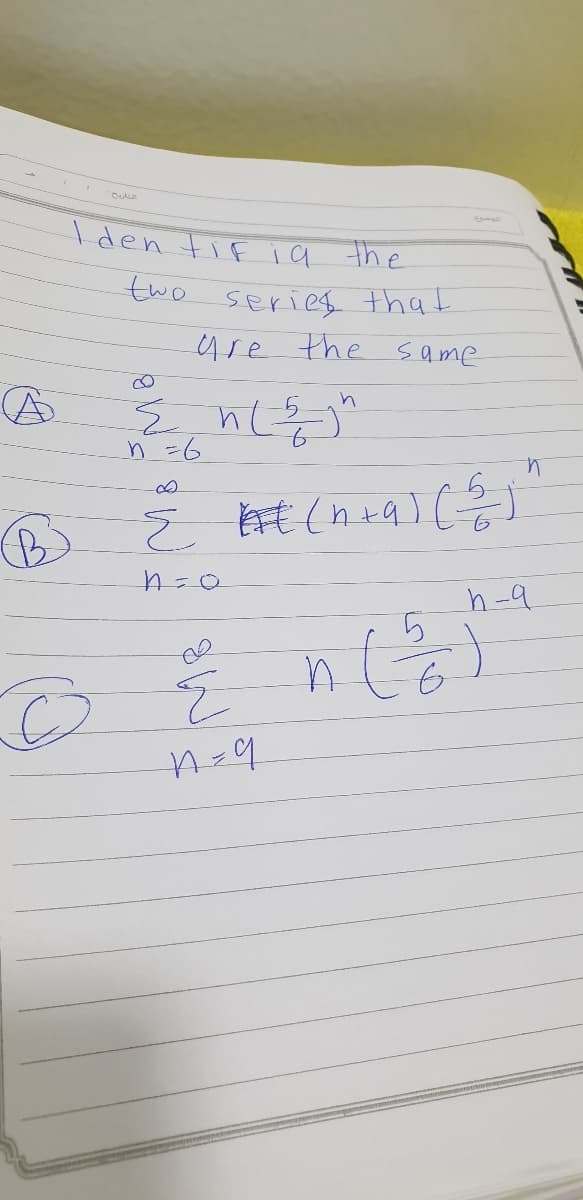 Identifig the
two series that
are the same
A ∞ Σ n=6 n(5/6)^n
B ∞ Σ n=0 (n+9)(5/6)^n
C ∞ Σ n=9 n(5/6)^n-9